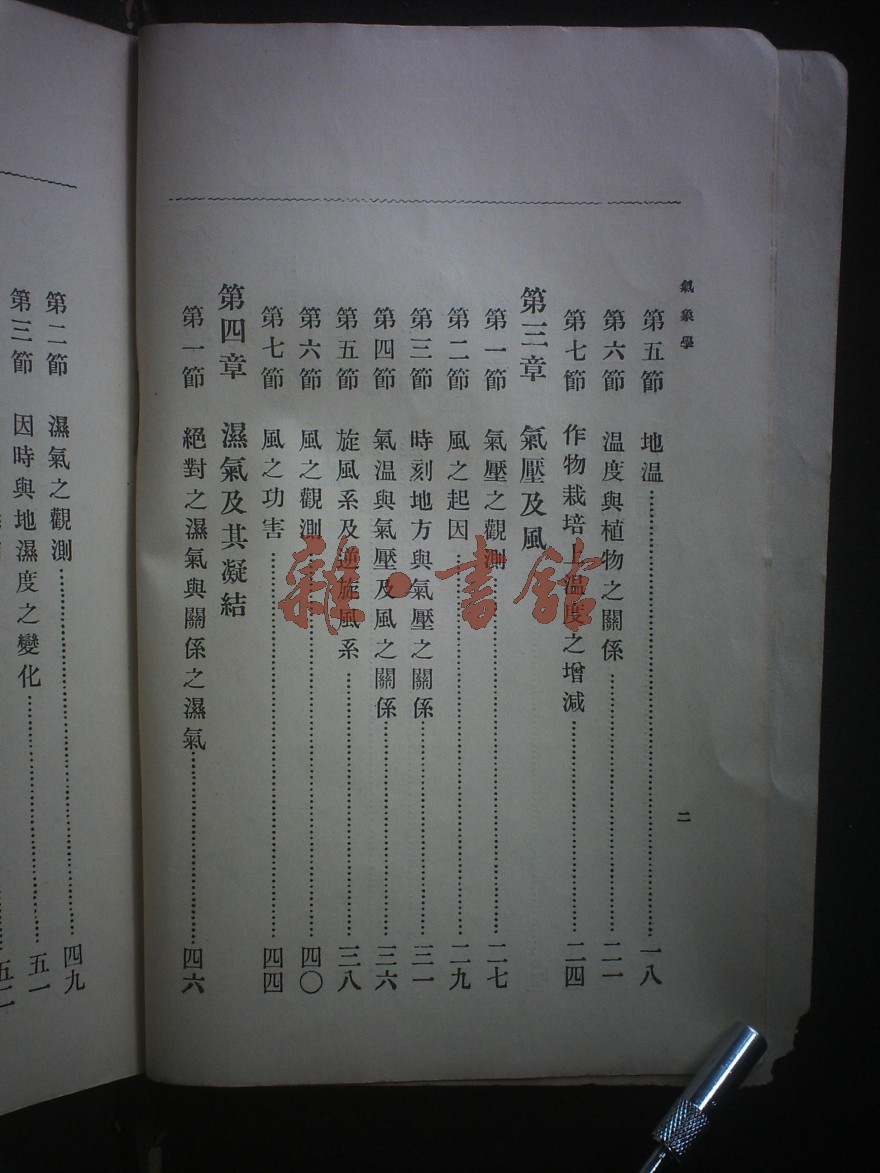 氣象學
二
第五節 地温……一八
第六節 温度與植物之關係……二一
第七節 作物栽培上温度之增減……二四
第三章 氣壓及風
第一節 氣壓之觀測……二七
第二節 風之起因……二九
第三節 時刻地方與氣壓之關係……三一
第四節 氣温與氣壓及風之關係……三六
第五節 旋風系及逆旋風系……三八
第六節 風之觀測……四〇
第七節 風之功害……四四
第四章 濕氣及其凝結
第一節 絕對之濕氣與關係之濕氣……四六
第二節 濕氣之觀測……四九
第三節 因時與地濕度之變化……五一
雜·書館